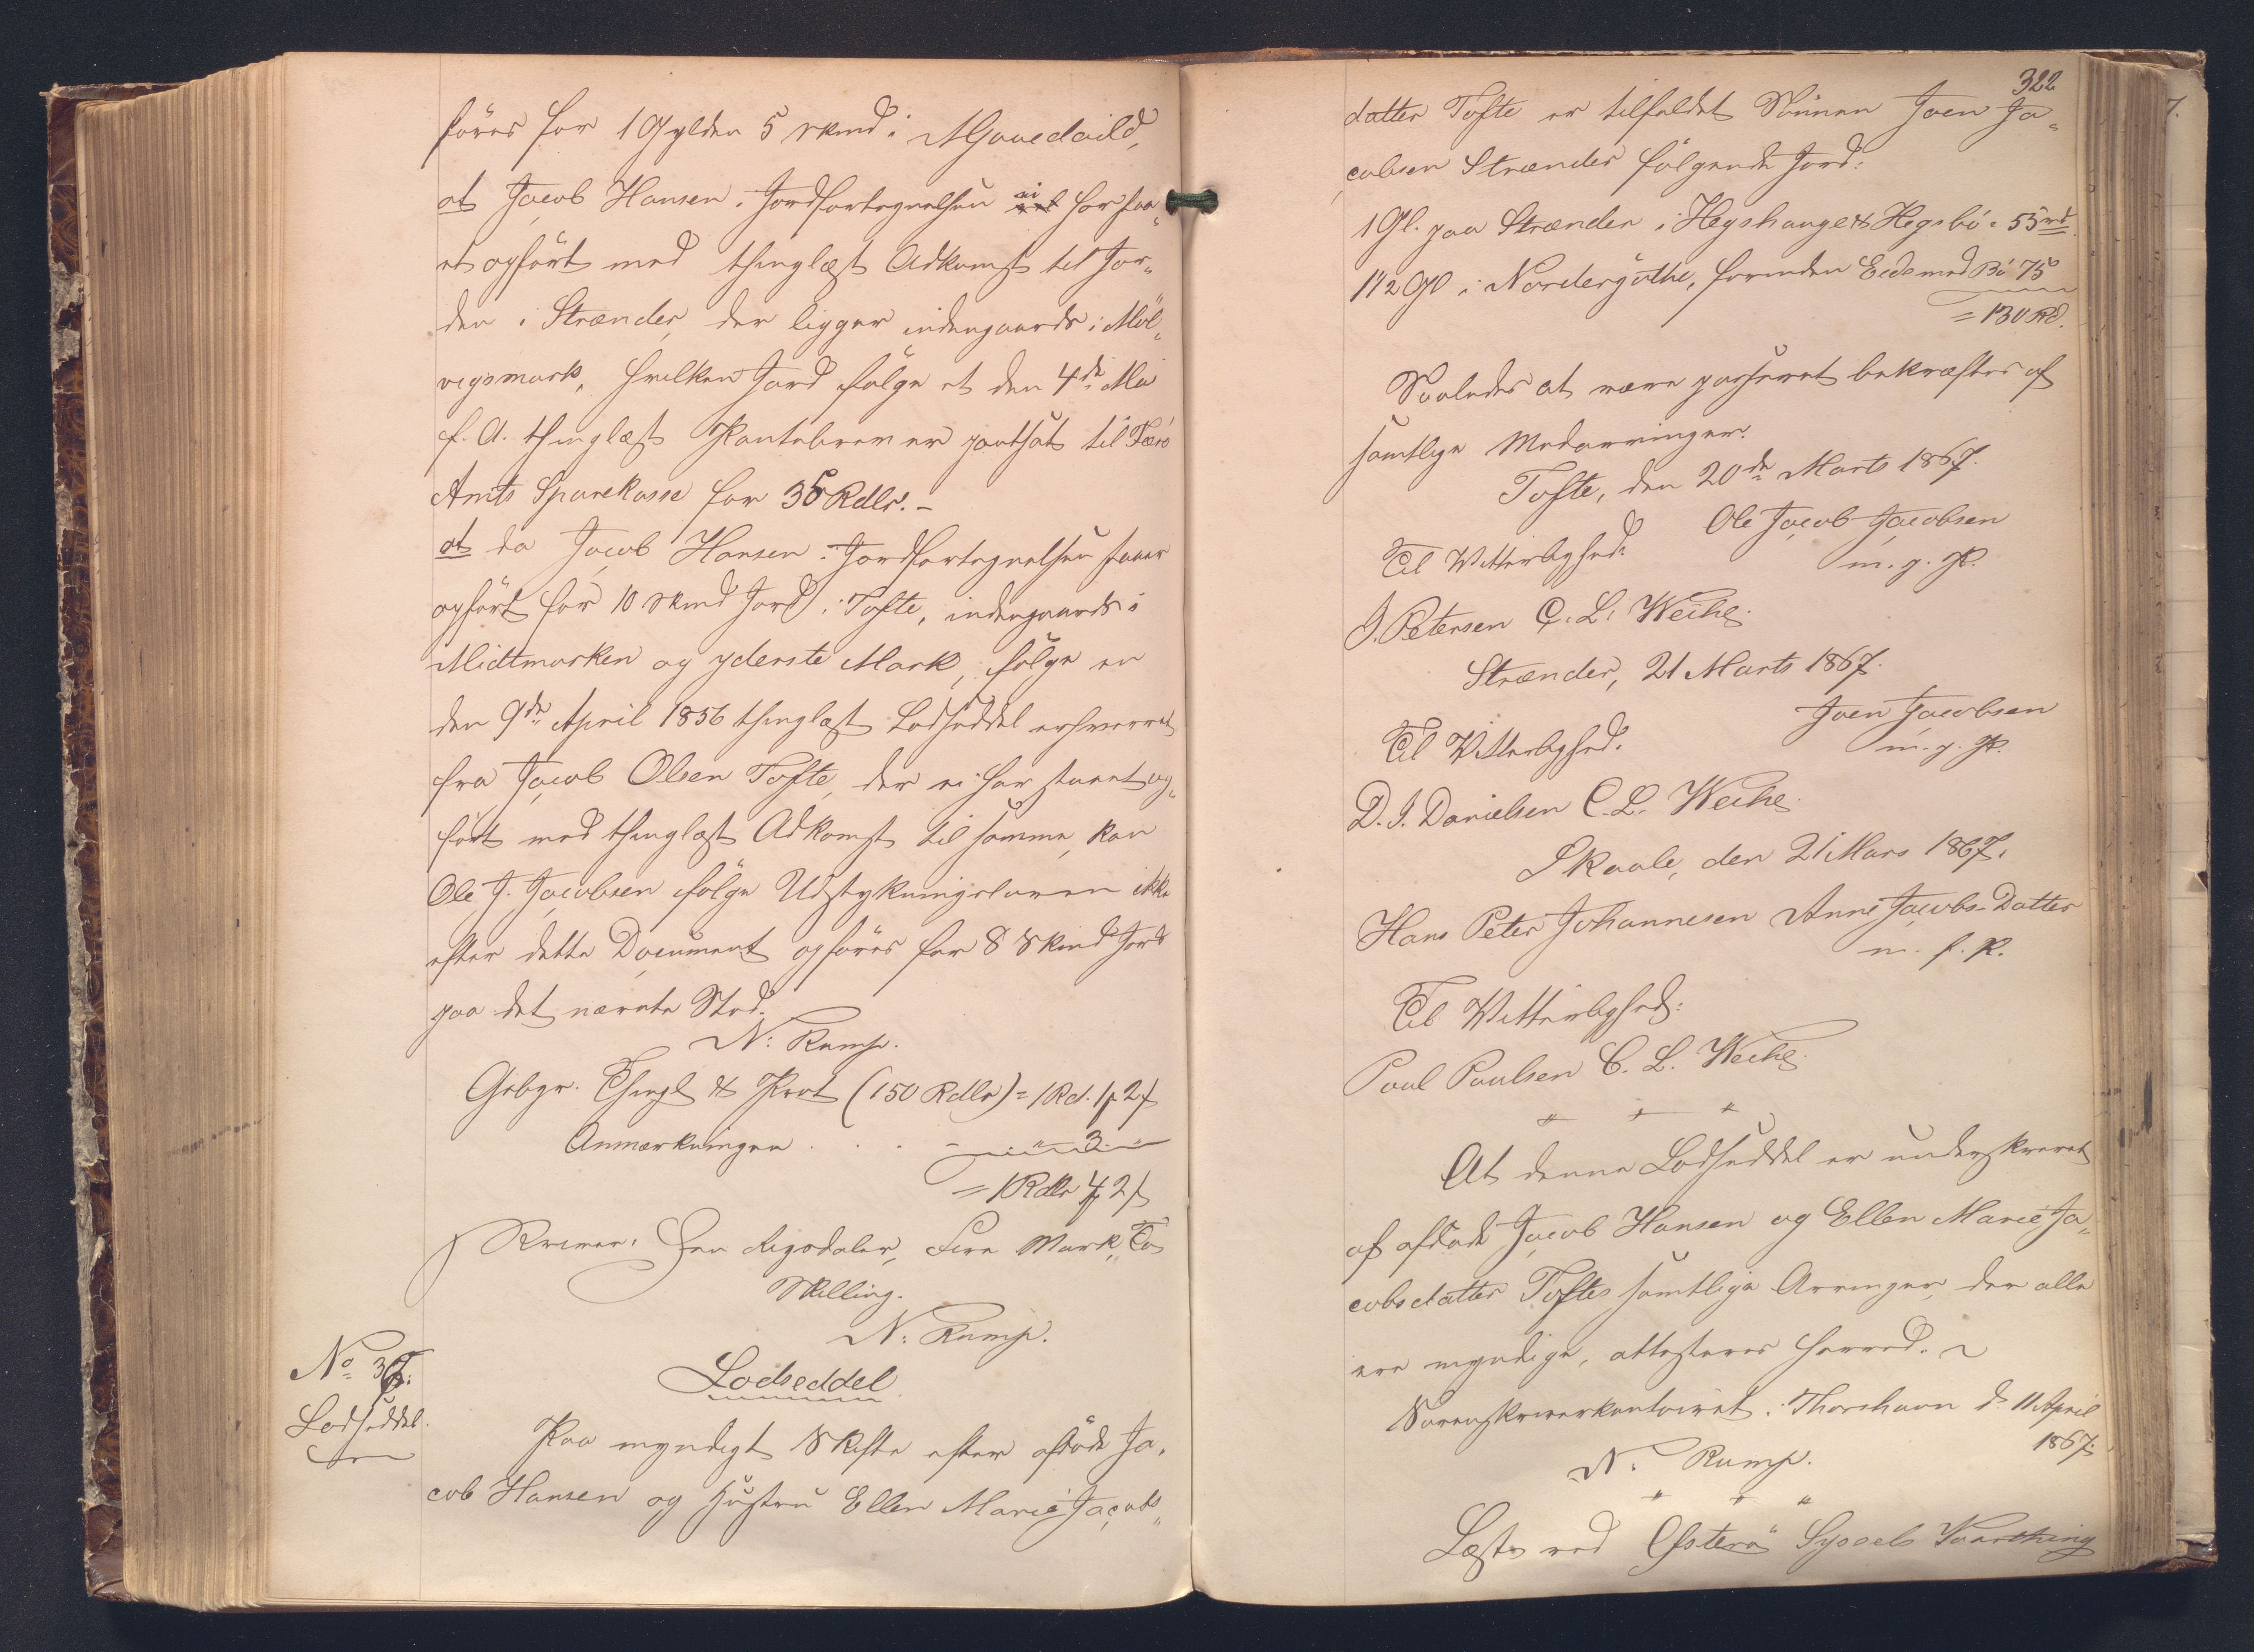 föres for 1 Gylden 5 Skind i Mjavedaild,
at Jacob Hansen i Jordfortegnelsen ei har faa-
et opført med thinglæst Adkomst til Jor-
den i Strænder, der ligger indengaards i Möl-
vigsmark, hvilken Jord følge et den 4de Mai
f. A. thinglæst Pantebrev er pantsat til Færö
Amts Sparekasse for 35 Rdlr. -
at da Jacob Hansen i Jordfortegnelsen staaer
opført for 10 Skind Jord i Tofte, indengaards i
Midtmarken og yderste Mark, følge en
den 9de April 1856 thinglæst Lodseddel erhvervet
fra Jacob Olsen Tofte, der ei har staaet op-
ført med thinglæst Adkomst til samme, kan
Ole J. Jacobsen følge Udstykningsloven ikke
efter dette Document opføres for 8 Skind Jord
paa det nævnte Sted.
N. Rump.
Gebyr. Thingl & Prot (150 Rdlr) = 1 Rd. 1 ꝑ 2 ß
Anmærkningen . . . - " 3 "
= 1 Rdlr 4 ꝑ 2 ß
Skriver: Een Rigsdaler, Fire Mark, To
Skilling.
N. Rump.
No 37.
Lodseddel.
Lodseddel
Paa myndigt Skifte efter afdøde Ja-
cob Hansen og Hustru Ellen Marie Jacobs-
322
datter Tofte er tilfaldet Sönnen Joen Ja-
cobsen Strænder følgende Jord:
1 Gl. paa Strænder i Hegshauge & Hegsbö = 55 rd
1 1/2 Gl i Nordergöthe, forinden Eede med Bö 75
= 130 Rd.
Saaledes at være passeret bekræftes af
samtlige Medarvinger.
Tofte, den 20de Marts 1867.
Ole Jacob Jacobsen
Til Vitterlighed: m. g. P.
J. Petersen C. L. Weihe
Strænder, 21 Marts 1867.
Joen Jacobsen
Til Vitterlighed: m. g. P.
D. J. Danielsen C. L. Weihe
Skaale, den 21 Mars 1867.
Hans Peter Johannesen Anne Jacobs-Datter
m. f. P.
Til Vitterlighed:
Poul Poulsen C. L. Weihe
" " "
At denne Lodseddel er underskrevet
af afdøde Jacob Hansen og Ellen Marie Ja-
cobsdatter Toftes samtlige Arvinger, der alle
ere myndige, attesteres herved.
Sorenskriverkontoiret i Thorshavn d. 11 April
1867.
N. Rump.
" " "
Læst ved Østerö Syssels Vaarthing